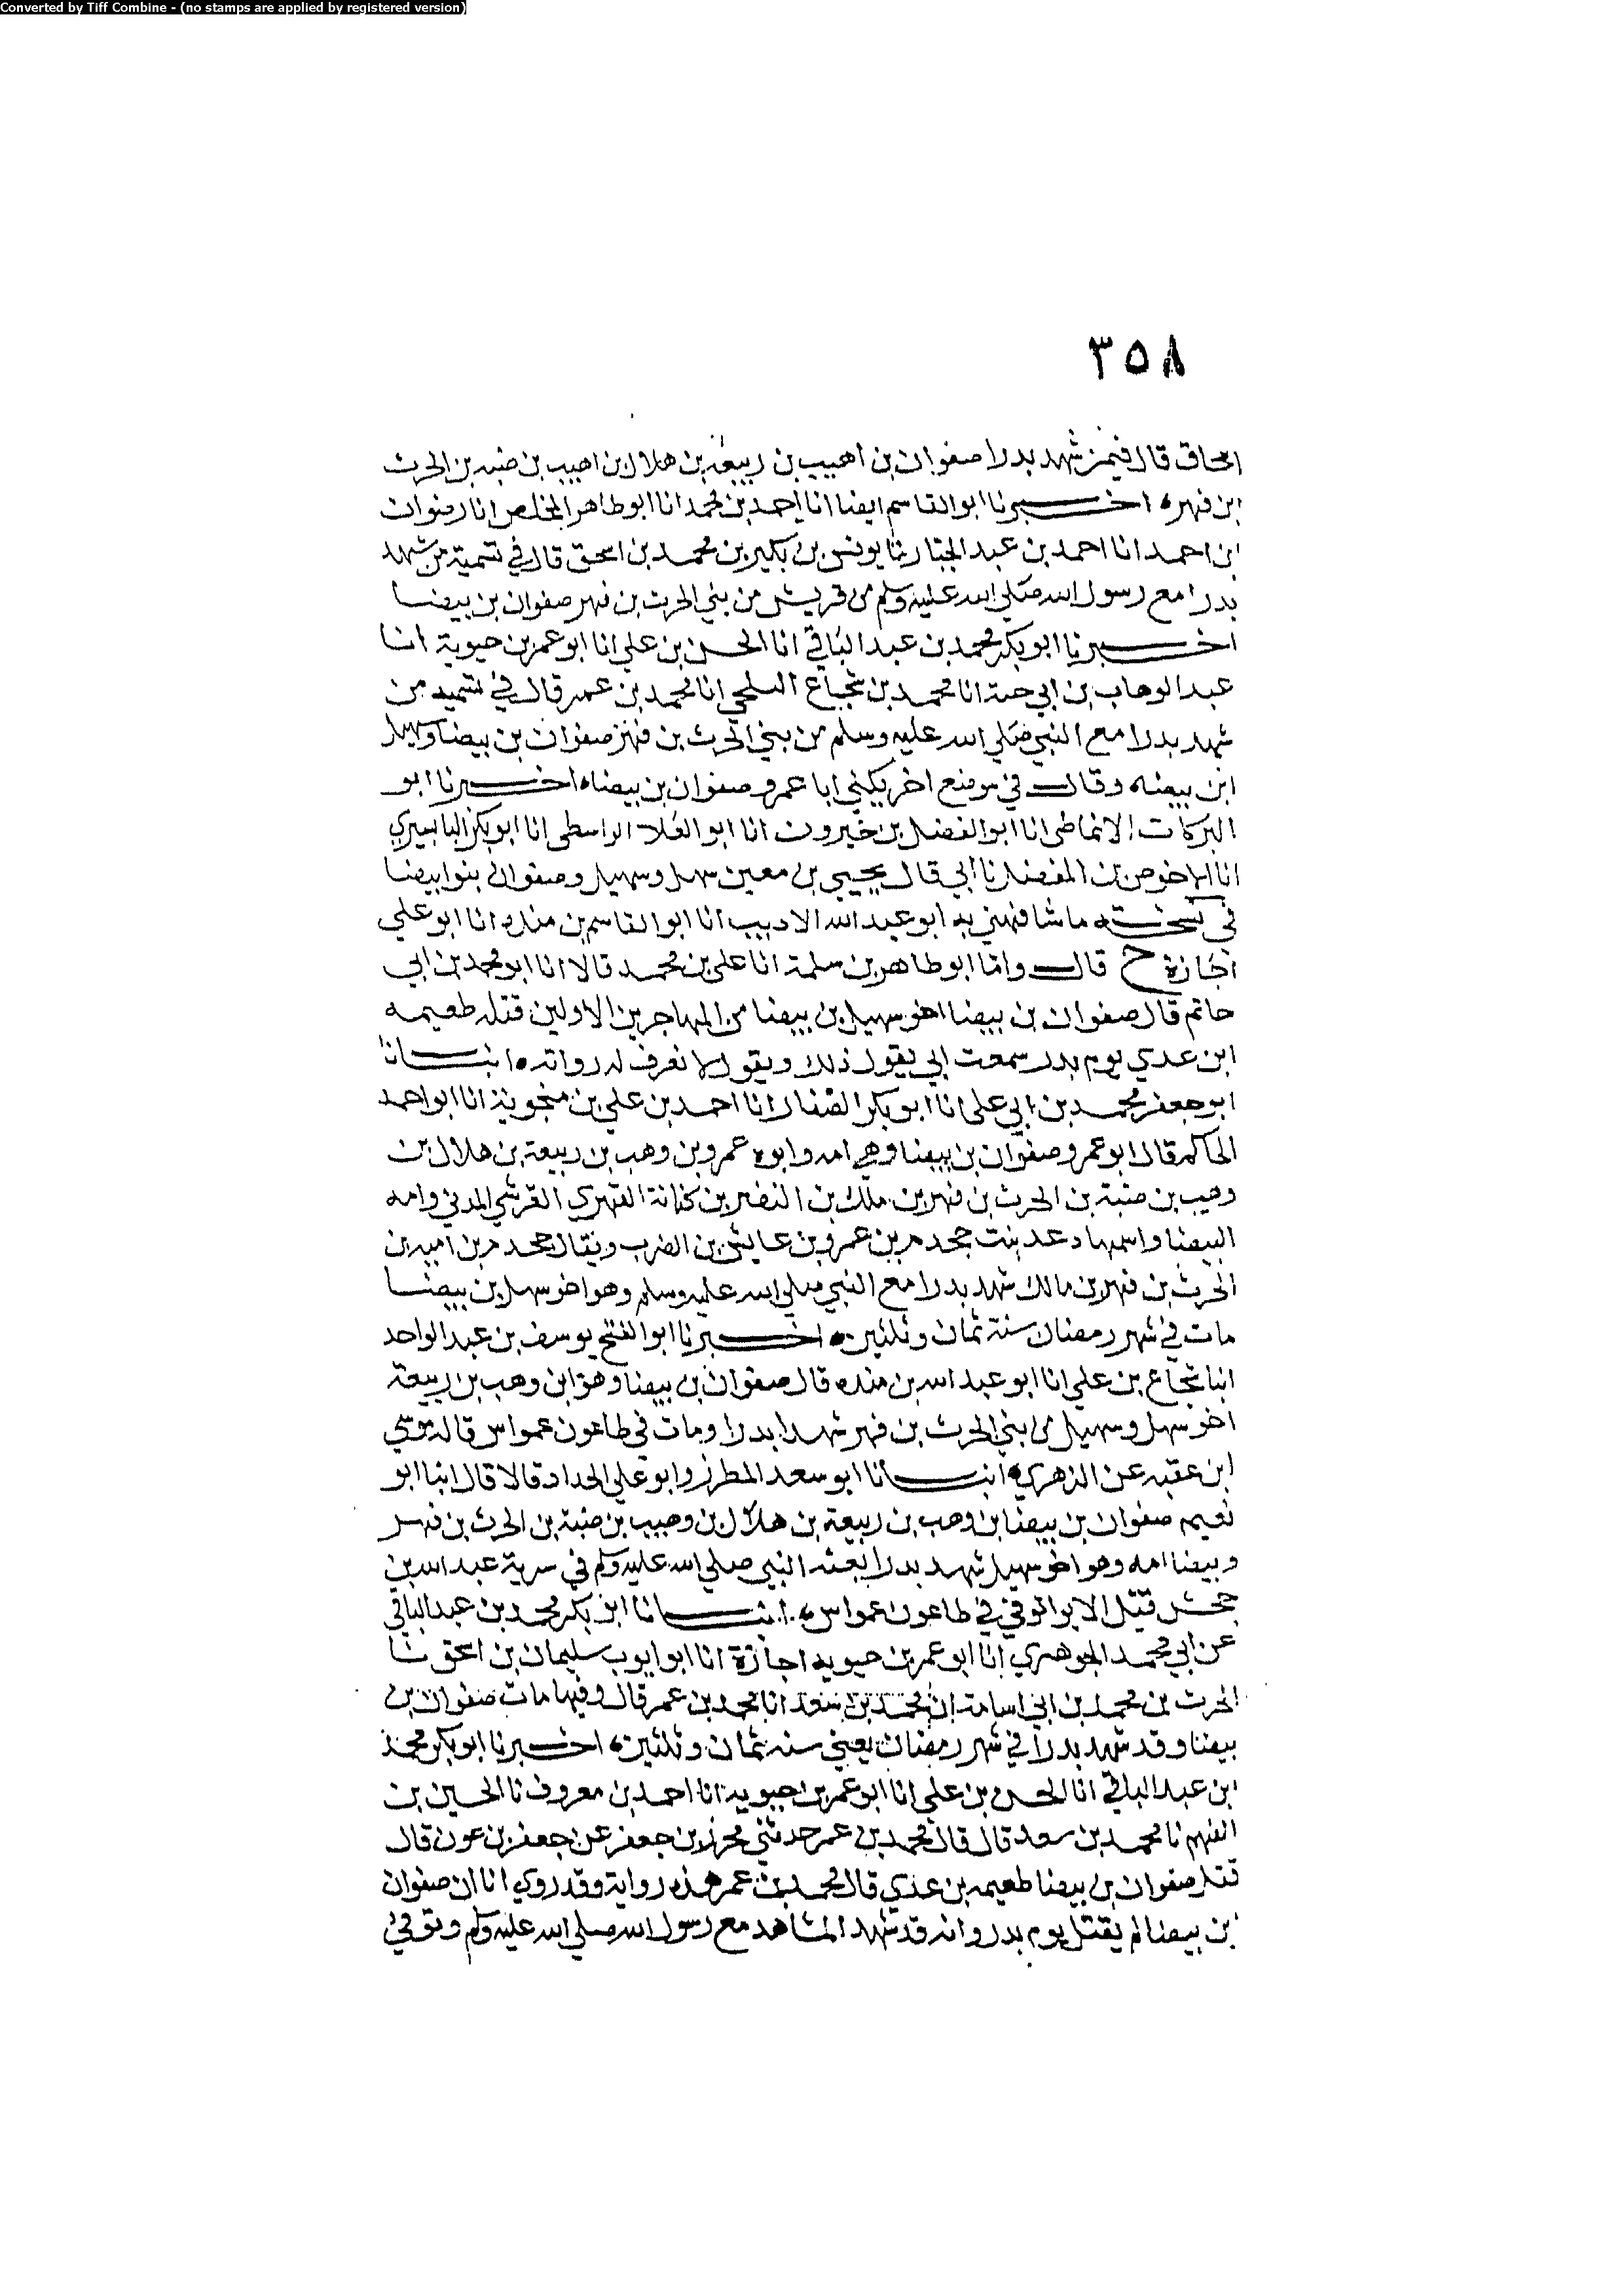 Converted by Tiff Combine - (no stamps are applied by registered version)
٣٥٨
اسحاق قال فيمن شهد بدرا صفوان بن اهيب بن ربيعة بن هلال بن اهيب بن ضبه بن الحرث
ابن فهره اخبرنا ابو القاسم ايضا انا احمد بن محمد انا ابو طاهر المخلص انا رضوان
ابن احمد انا احمد بن عبد الجبار نا يونس بن بكير بن محمد بن اسحق قال في تسمية من شهد
بدرا مع رسول الله صلى الله عليه وسلم من قريش من بني الحرث بن فهر صفوان بن بيضا
اخبرنا ابو بكر محمد بن عبد الباقي انا الحسن بن علي انا ابو عمر بن حيوية انا
عبد الوهاب بن ابي حية انا محمد بن شجاع البلخي انا محمد بن عمر قال في تسميه من
شهد بدرا مع النبي صلى الله عليه وسلم من بني الحرث بن فهر صفوان بن بيضا وسهيل
ابن بيضه وقال في موضع اخر يكني ابا عمرو صفوان بن بيضاه اخبرنا ابو
البركات الانماطي انا ابو الفضل بن خيرون انا ابو العلا الواسطي انا ابو بكر البابسيري
انا الاخوص بن المفضل نا ابي قال يحيي بن معين سهل وسهيل وصفوان بنوا بيضا
في نسخته ما شافهني به ابو عبد الله الاديب انا ابو القاسم بن منده انا ابو علي
اجازة ح قال واما ابو طاهر بن سلمة انا علي بن محمد قالا انا ابو محمد بن ابي
حاتم قال صفوان بن بيضا اخو سهيل بن بيضا من المهاجرين الاولين قتله طعيمه
ابن عدي يوم بدر سمعت ابي يقول ذلك ويقول لا نعرف له رواته ه انبانا
ابو جعفر محمد بن ابي علي انا ابو بكر الصفار انا احمد بن علي بن منجوية انا ابو احمد
الحاكم قال ابو عمرو صفوان بن بيضا وهي امه وابوه عمرو بن وهب بن ربيعة بن هلال بن
وهيب بن ضبة بن الحرث بن فهر بن ملك بن النضر بن كنانة الفهري القرشي المدني وامه
البيضا واسمها دعد بنت جحدم بن عمرو بن عايش بن الضرب ويقال جحدم بن اميه بن
الحرث بن فهر بن مالك شهد بدرا مع النبي صلى الله عليه وسلم وهو اخو سهل بن بيضا
مات في شهر رمضان سنة ثمان وثلثين ه اخبرنا ابو الفتح يوسف بن عبد الواحد
انبا شجاع بن علي انا ابو عبد الله بن منده قال صفوان بن بيضا وهو ابن وهب بن ربيعة
اخو سهل وسهيل من بني الحرث بن فهر شهدا بدرا ومات في طاعون عمواس قاله موسي
ابن عقبه عن الزهري ه انبانا ابو سعد المطرز وابو علي الحداد قالا قال انبا ابو
نعيم صفوان بن بيضا بن وهب بن ربيعة بن هلال بن وهيب بن ضبة بن الحرث بن فهر
وبيضا امه وهو اخو سهيل شهد بدرا بعثه النبي صلى الله عليه وسلم في سرية عبد الله بن
جحش قبل الابوا توفي في طاعون عمواس ه انبانا ابو بكر محمد بن عبد الباقي
عن ابي محمد الجوهري انا ابو عمر بن حيويه اجازة انا ابو ايوب سليمان بن اسحق نا
الحرث بن محمد بن ابي اسامة انا محمد بن سعد انا محمد بن عمر قال وفيها مات صفوان بن
بيضا وقد شهد بدرا في شهر رمضان يعني سنه ثمان وثلثين ه اخبرنا ابو بكر محمد
ابن عبد الباقي انا الحسن بن علي انا ابو عمر بن حيويه انا احمد بن معروف نا الحسين بن
الفهم نا محمد بن سعد قال قال محمد بن عمر حدثني محرز بن جعفر عن جعفر بن عون قال
قتل صفوان بن بيضا طعيمه بن عدي قال محمد بن عمر هذه رواية وقد روي انا ان صفوان
ابن بيضا لم يقتل يوم بدر وانه قد شهد المشاهد مع رسول الله صلى الله عليه وسلم وتوفي